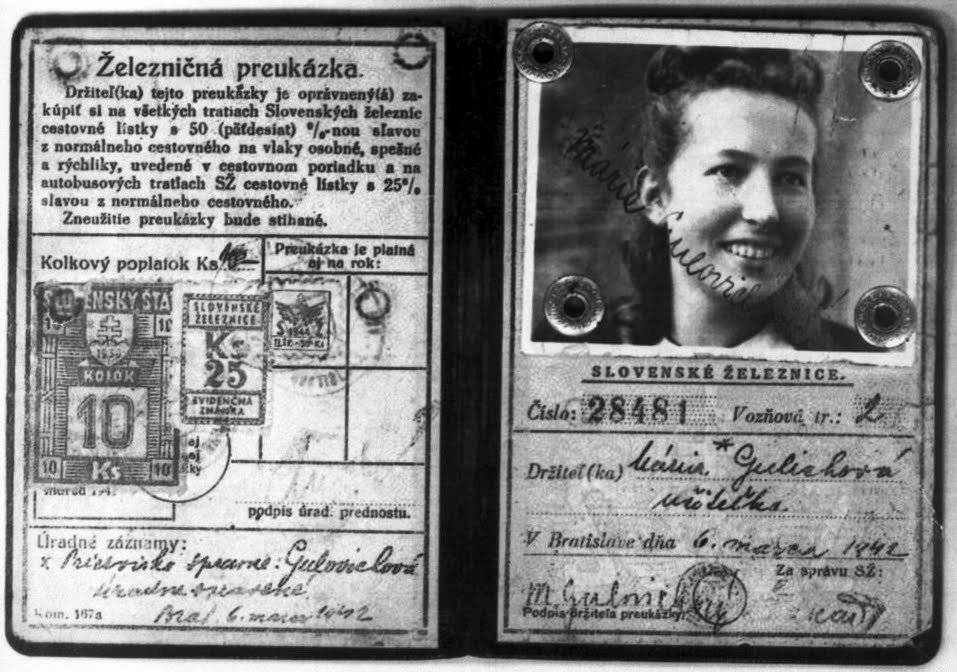 Železničná preukázka.
Držiteľ(ka) tejto preukázky je oprávnený(á) za-
kúpiť si na všetkých tratiach Slovenských železníc
cestovné lístky s 50 (päťdesiat) %-nou sľavou
z normálneho cestovného na vlaky osobné, spešné
a rýchliky, uvedené v cestovnom poriadku a na
autobusových tratiach SŽ cestovné lístky s 25%
sľavou z normálneho cestovného.
Zneužitie preukázky bude stíhané.
Kolkový poplatok Ks
Preukázka je platná
aj na rok:
SLOVENSKÝ ŠTÁT
10 10
1939
KOLOK
10
10 Ks 10
SLOVENSKÉ
ŽELEZNICE
Ks
25
EVIDENČNÁ
ZNÁMKA
S Ž
podpis úrad. prednostu.
Úradné záznamy:
Priezvisko správne: Gulovichová
Úradne opravené.
Brat. 6. marca 1942
Kom. 167a
Mária Gulovich
SLOVENSKÉ ŽELEZNICE.
Číslo: 28481 Vozňová tr.: 2
Držiteľ(ka) Mária * Gulichová
učiteľka
V Bratislave dňa 6. marca 1942
Za správu SŽ:
M Gulovich
Podpis držiteľa preukázky: